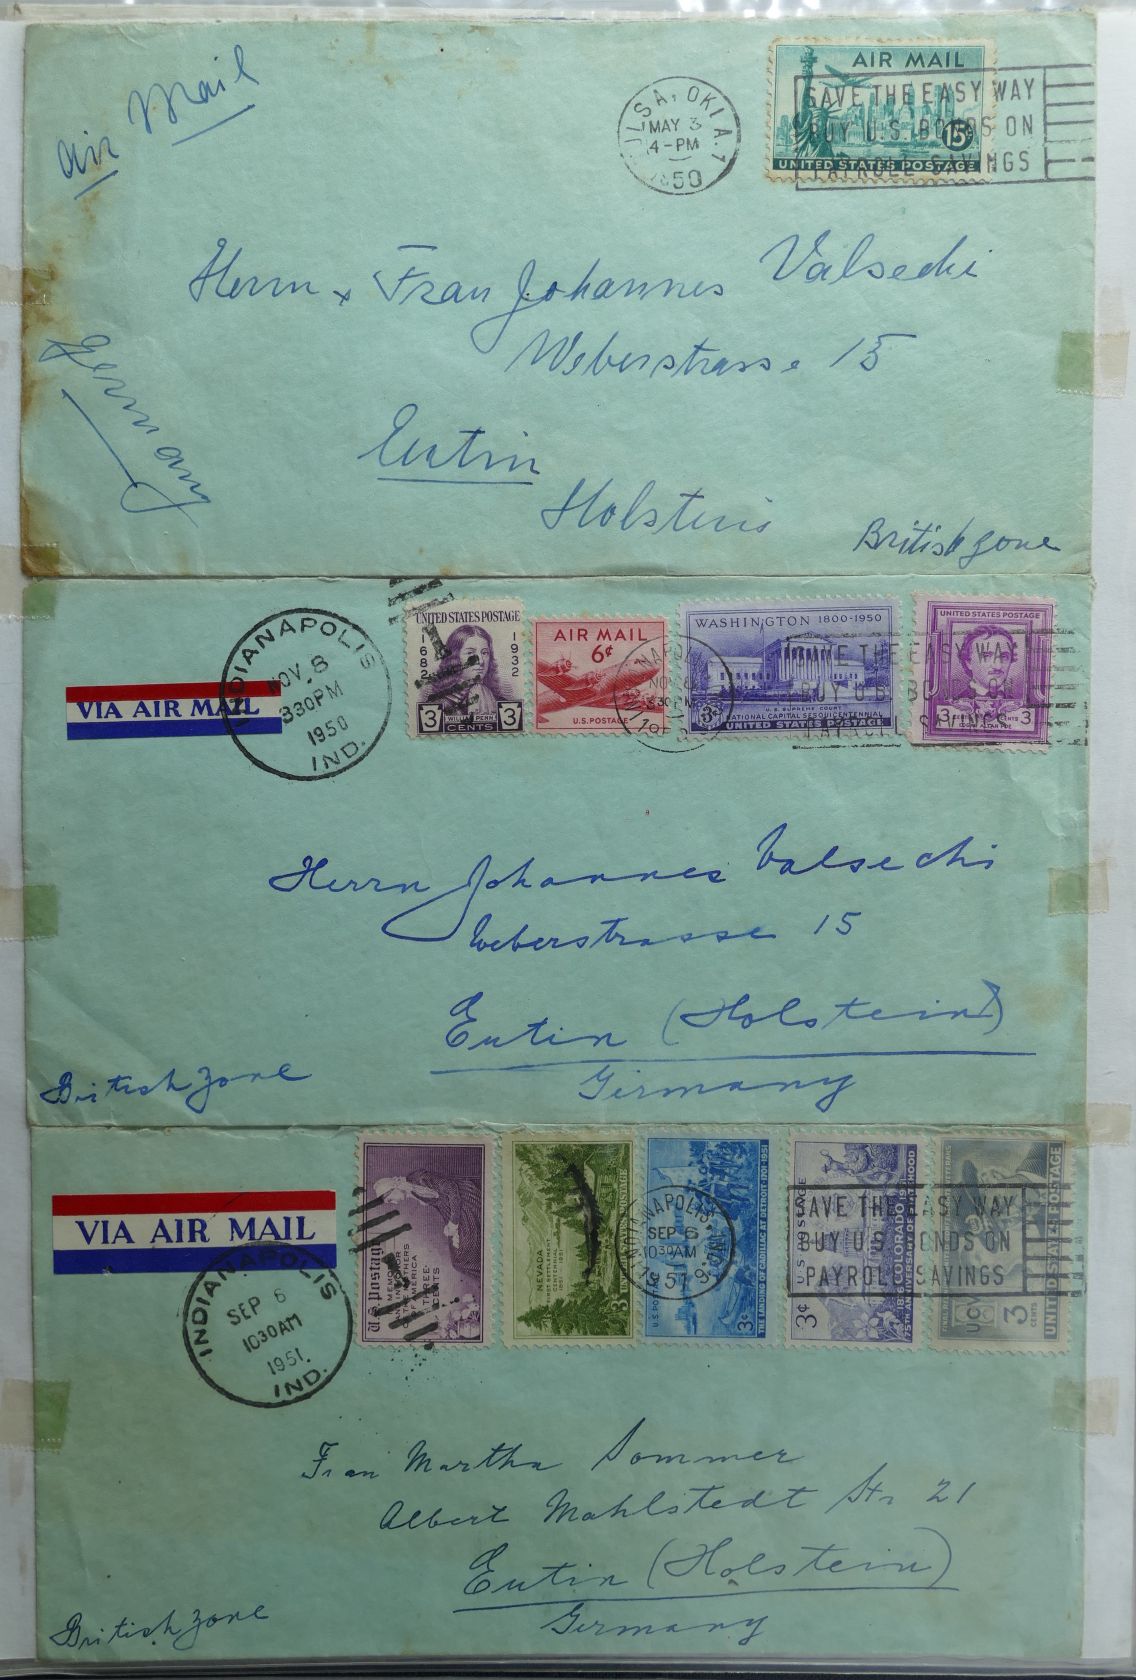 Air Mail
TULSA, OKLA. 1
MAY 3
4-PM
1950
AIR MAIL
15¢
UNITED STATES POSTAGE
SAVE THE EASY WAY
BUY U.S. BONDS ON
PAYROLL SAVINGS
Herrn + Frau Johannes Valsechi
Weberstrasse 15
Eutin
Holstein
Germany
British zone
VIA AIR MAIL
INDIANAPOLIS
NOV. 8
330PM
1950
IND.
UNITED STATES POSTAGE
1682
1932
3
WILLIAM PENN
3
CENTS
AIR MAIL
6¢
U.S. POSTAGE
WASHINGTON 1800-1950
3¢
U.S. SUPREME COURT
NATIONAL CAPITAL SESQUICENTENNIAL
UNITED STATES POSTAGE
UNITED STATES POSTAGE
3
CENTS
3
SAVE THE EASY WAY
BUY U.S. BONDS ON
PAYROLL SAVINGS
Herrn Johannes Valsechi
Weberstrasse 15
Eutin (Holstein)
Germany
British zone
VIA AIR MAIL
INDIANAPOLIS
SEP 6
1030AM
1951
IND.
U.S. Postage
IN MEMORY
AND IN HONOR
OF THE MOTHERS
OF AMERICA
THREE
CENTS
NEVADA
FIRST SETTLEMENT
CENTENNIAL
1851 1951
3¢ UNITED STATES POSTAGE
U.S. POSTAGE
3¢
THE LANDING OF CADILLAC AT DETROIT-1701-1951
INDIANAPOLIS, IND.
SEP 6
1030AM
1951
U.S. POSTAGE
3¢
COLORADO
75TH ANNIVERSARY OF STATEHOOD
UCV
3 CENTS
UNITED STATES POSTAGE
SAVE THE EASY WAY
BUY U.S. BONDS ON
PAYROLL SAVINGS
Frau Martha Sommer
Albert Mahlstedt Str 21
Eutin (Holstein)
Germany
British zone